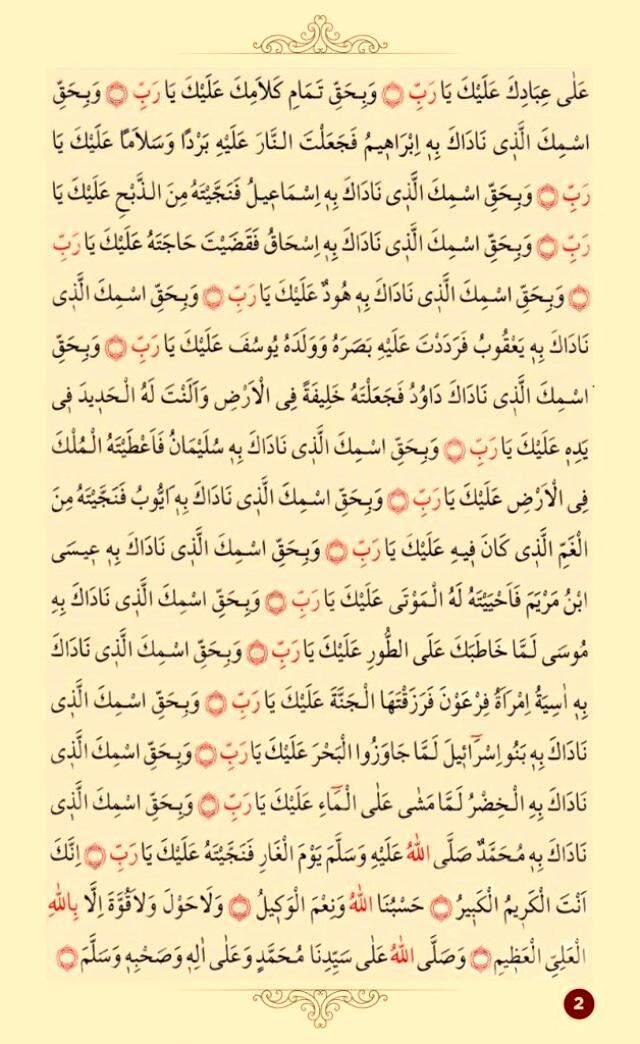 عَلٰى عِبَادِكَ عَلَيْكَ يَا رَبِّ ۝ وَبِحَقِّ تَمَامِ كَلَامِكَ عَلَيْكَ يَا رَبِّ ۝ وَبِحَقِّ
اسْمِكَ الَّذِى نَادَاكَ بِهِ اِبْرَاهِيمُ فَجَعَلْتَ النَّارَ عَلَيْهِ بَرْدًا وَسَلَامًا عَلَيْكَ يَا
رَبِّ ۝ وَبِحَقِّ اسْمِكَ الَّذِى نَادَاكَ بِهِ اِسْمَاعِيلُ فَنَجَّيْتَهُ مِنَ الذَّبْحِ عَلَيْكَ يَا
رَبِّ ۝ وَبِحَقِّ اسْمِكَ الَّذِى نَادَاكَ بِهِ اِسْحَاقُ فَقَضَيْتَ حَاجَتَهُ عَلَيْكَ يَا رَبِّ
۝ وَبِحَقِّ اسْمِكَ الَّذِى نَادَاكَ بِهِ هُودٌ عَلَيْكَ يَا رَبِّ ۝ وَبِحَقِّ اسْمِكَ الَّذِى
نَادَاكَ بِهِ يَعْقُوبُ فَرَدَدْتَ عَلَيْهِ بَصَرَهُ وَوَلَدَهُ يُوسُفَ عَلَيْكَ يَا رَبِّ ۝ وَبِحَقِّ
اسْمِكَ الَّذِى نَادَاكَ دَاوُدُ فَجَعَلْتَهُ خَلِيفَةً فِى الْاَرْضِ وَاَلَنْتَ لَهُ الْحَدِيدَ فِى
يَدِهِ عَلَيْكَ يَا رَبِّ ۝ وَبِحَقِّ اسْمِكَ الَّذِى نَادَاكَ بِهِ سُلَيْمَانُ فَاَعْطَيْتَهُ الْمُلْكَ
فِى الْاَرْضِ عَلَيْكَ يَا رَبِّ ۝ وَبِحَقِّ اسْمِكَ الَّذِى نَادَاكَ بِهِ اَيُّوبُ فَنَجَّيْتَهُ مِنَ
الْغَمِّ الَّذِى كَانَ فِيهِ عَلَيْكَ يَا رَبِّ ۝ وَبِحَقِّ اسْمِكَ الَّذِى نَادَاكَ بِهِ عِيسَى
ابْنُ مَرْيَمَ فَاَحْيَيْتَهُ لَهُ الْمَوْتَى عَلَيْكَ يَا رَبِّ ۝ وَبِحَقِّ اسْمِكَ الَّذِى نَادَاكَ بِهِ
مُوسَى لَمَّا خَاطَبَكَ عَلَى الطُّورِ عَلَيْكَ يَا رَبِّ ۝ وَبِحَقِّ اسْمِكَ الَّذِى نَادَاكَ
بِهِ اٰسِيَةُ اِمْرَاَةُ فِرْعَوْنَ فَرَزَقْتَهَا الْجَنَّةَ عَلَيْكَ يَا رَبِّ ۝ وَبِحَقِّ اسْمِكَ الَّذِى
نَادَاكَ بِهِ بَنُو اِسْرَآئِيلَ لَمَّا جَاوَزُوا الْبَحْرَ عَلَيْكَ يَا رَبِّ ۝ وَبِحَقِّ اسْمِكَ الَّذِى
نَادَاكَ بِهِ الْخِضْرُ لَمَّا مَشٰى عَلَى الْمَآءِ عَلَيْكَ يَا رَبِّ ۝ وَبِحَقِّ اسْمِكَ الَّذِى
نَادَاكَ بِهِ مُحَمَّدٌ صَلَّى اللّٰهُ عَلَيْهِ وَسَلَّمَ يَوْمَ الْغَارِ فَنَجَّيْتَهُ عَلَيْكَ يَا رَبِّ ۝ اِنَّكَ
اَنْتَ الْكَرِيمُ الْكَبِيرُ ۝ حَسْبُنَا اللّٰهُ وَنِعْمَ الْوَكِيلُ ۝ وَلَا حَوْلَ وَلَا قُوَّةَ اِلَّا بِاللّٰهِ
الْعَلِىِّ الْعَظِيمِ ۝ وَصَلَّى اللّٰهُ عَلٰى سَيِّدِنَا مُحَمَّدٍ وَعَلٰى اٰلِهِ وَصَحْبِهِ وَسَلَّمَ ۝
2